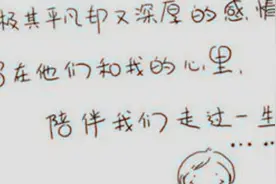 极其平凡却又深厚的感情
在他们和我的心里,
陪伴我们走过一生
……